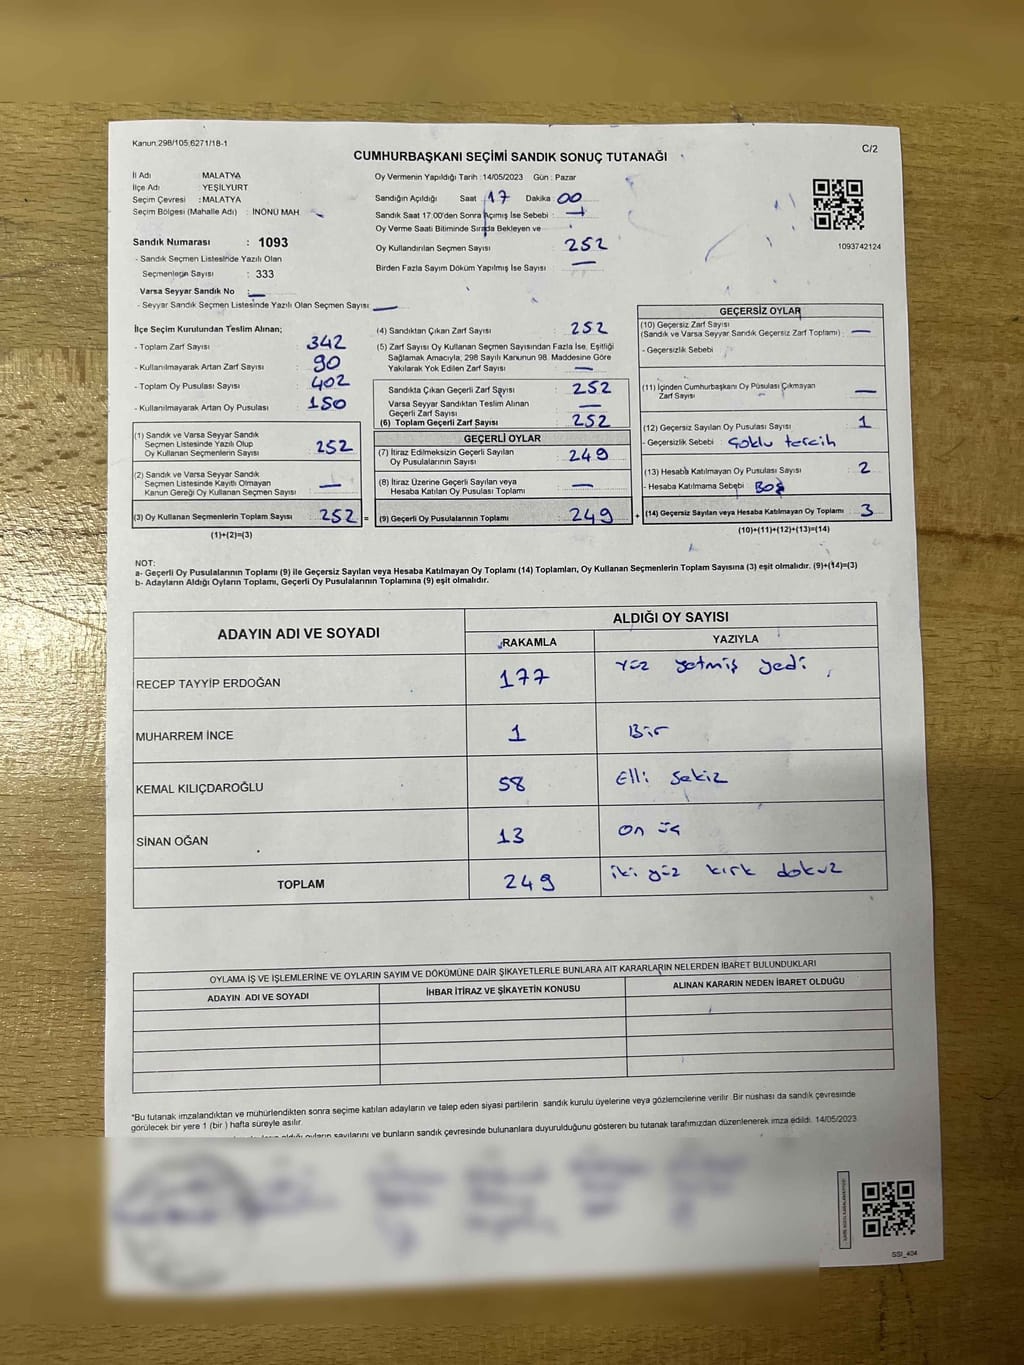 Kanun:298/105;6271/18-1
C/2
CUMHURBAŞKANI SEÇİMİ SANDIK SONUÇ TUTANAĞI
İl Adı MALATYA
İlçe Adı YEŞİLYURT
Seçim Çevresi : MALATYA
Seçim Bölgesi (Mahalle Adı) : İNÖNÜ MAH
Sandık Numarası : 1093
- Sandık Seçmen Listesinde Yazılı Olan
Seçmenlerin Sayısı : 333
Varsa Seyyar Sandık No : —
- Seyyar Sandık Seçmen Listesinde Yazılı Olan Seçmen Sayısı: —
Oy Vermenin Yapıldığı Tarih :14/05/2023 Gün : Pazar
Sandığın Açıldığı Saat : 17 Dakika : 00
Sandık Saat 17:00'den Sonra Açımış İse Sebebi : —
Oy Verme Saati Bitiminde Sırada Bekleyen ve
Oy Kullandırılan Seçmen Sayısı 252
Birden Fazla Sayım Döküm Yapılmış İse Sayısı : —
1093742124
İlçe Seçim Kurulundan Teslim Alınan;
- Toplam Zarf Sayısı : 342
- Kullanılmayarak Artan Zarf Sayısı : 90
- Toplam Oy Pusulası Sayısı : 402
- Kullanılmayarak Artan Oy Pusulası : 150
(1) Sandık ve Varsa Seyyar Sandık
Seçmen Listesinde Yazılı Olup
Oy Kullanan Seçmenlerin Sayısı : 252
(2) Sandık ve Varsa Seyyar Sandık
Seçmen Listesinde Kayıtlı Olmayan
Kanun Gereği Oy Kullanan Seçmen Sayısı : —
(3) Oy Kullanan Seçmenlerin Toplam Sayısı : 252 =
(1)+(2)=(3)
(4) Sandıktan Çıkan Zarf Sayısı : 252
(5) Zarf Sayısı Oy Kullanan Seçmen Sayısından Fazla İse, Eşitliği
Sağlamak Amacıyla, 298 Sayılı Kanunun 98. Maddesine Göre
Yakılarak Yok Edilen Zarf Sayısı : —
Sandıkta Çıkan Geçerli Zarf Sayısı : 252
Varsa Seyyar Sandıktan Teslim Alınan
Geçerli Zarf Sayısı : —
(6) Toplam Geçerli Zarf Sayısı : 252
GEÇERLİ OYLAR
(7) İtiraz Edilmeksizin Geçerli Sayılan
Oy Pusulalarının Sayısı : 249
(8) İtiraz Üzerine Geçerli Sayılan veya
Hesaba Katılan Oy Pusulası Toplamı : —
(9) Geçerli Oy Pusulalarının Toplamı : 249 +
GEÇERSİZ OYLAR
(10) Geçersiz Zarf Sayısı
(Sandık ve Varsa Seyyar Sandık Geçersiz Zarf Toplamı) : —
- Geçersizlik Sebebi :
(11) İçinden Cumhurbaşkanı Oy Pusulası Çıkmayan
Zarf Sayısı : —
(12) Geçersiz Sayılan Oy Pusulası Sayısı : 1
- Geçersizlik Sebebi : Çoklu tercih
(13) Hesaba Katılmayan Oy Pusulası Sayısı : 2
- Hesaba Katılmama Sebebi : Boş
(14) Geçersiz Sayılan veya Hesaba Katılmayan Oy Toplamı : 3
(10)+(11)+(12)+(13)=(14)
NOT:
a- Geçerli Oy Pusulalarının Toplamı (9) ile Geçersiz Sayılan veya Hesaba Katılmayan Oy Toplamı (14) Toplamları, Oy Kullanan Seçmenlerin Toplam Sayısına (3) eşit olmalıdır. (9)+(14)=(3)
b- Adayların Aldığı Oyların Toplamı, Geçerli Oy Pusulalarının Toplamına (9) eşit olmalıdır.
ADAYIN ADI VE SOYADI ALDIĞI OY SAYISI
RAKAMLA YAZIYLA
RECEP TAYYİP ERDOĞAN 177 Yüz yetmiş yedi
MUHARREM İNCE 1 Bir
KEMAL KILIÇDAROĞLU 58 Elli Sekiz
SİNAN OĞAN 13 On üç
TOPLAM 249 iki yüz kırk dokuz
OYLAMA İŞ VE İŞLEMLERİNE VE OYLARIN SAYIM VE DÖKÜMÜNE DAİR ŞİKAYETLERLE BUNLARA AİT KARARLARIN NELERDEN İBARET BULUNDUKLARI
ADAYIN ADI VE SOYADI İHBAR İTİRAZ VE ŞİKAYETİN KONUSU ALINAN KARARIN NEDEN İBARET OLDUĞU
*Bu tutanak imzalandıktan ve mühürlendikten sonra seçime katılan adayların ve talep eden siyasi partilerin sandık kurulu üyelerine veya gözlemcilerine verilir. Bir nüshası da sandık çevresinde
görülecek bir yere 1 (bir ) hafta süreyle asılır.
oyların sayılarını ve bunların sandık çevresinde bulunanlara duyurulduğunu gösteren bu tutanak tarafımızdan düzenlenerek imza edildi. 14/05/2023
SSI_404